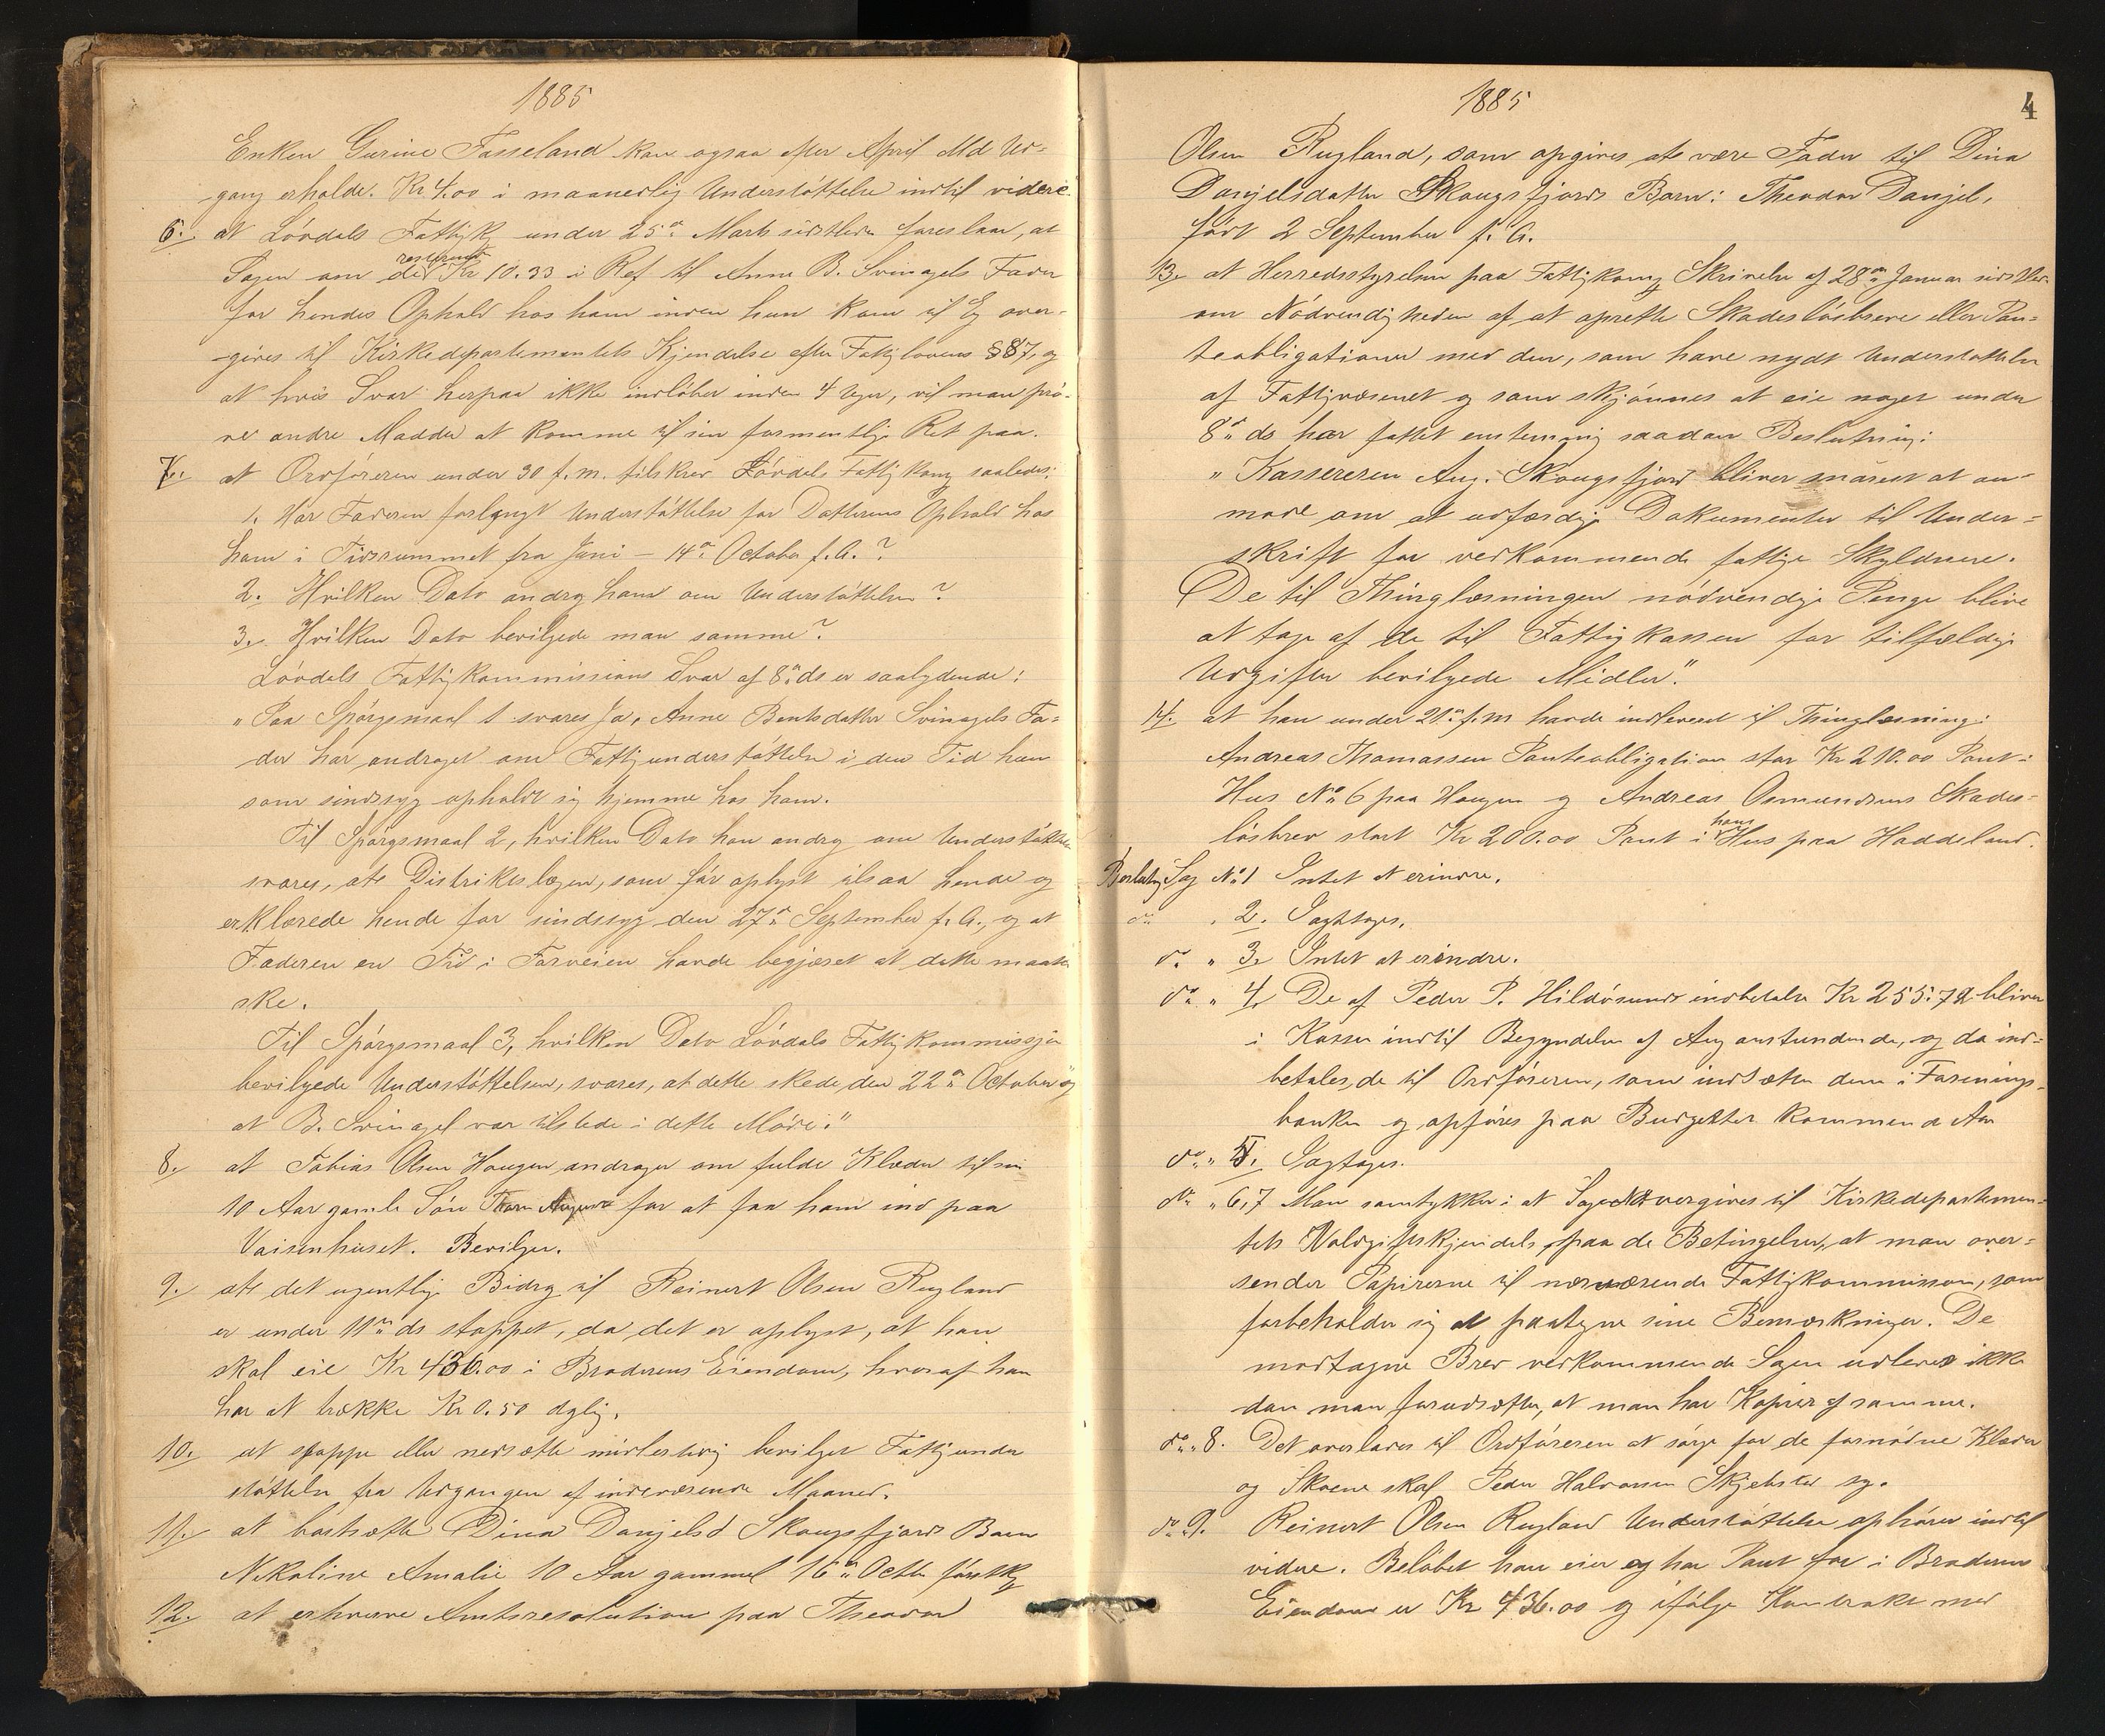 1885
Enken Gurine Fasseland kan ogsaa efter April Md Ud-
gang erholde. Kr 4.00 i maanedlig Understøttelse indtil videre.
6. at Løvdals Fattigk under 25de Marts sidstleden foreslaar, at
Sagen om de resterende Kr 10.33 i Ref til Anne B. Svinagels Fader
for hendes Ophold hos ham inden hun kom til Eg over-
-gives til Kirkedepartementets Kjendelse efter Fattiglovens § 87, og
at hvis Svar herpaa ikke indløber inden 4 Uger, vil man prø-
ve andre Maader at komme til sin formentlige Ret paa.
7. at Ordføreren under 30 f. m. tilskrev Løvdals Fattigkomm saaledes:
1. Har Faderen forlangt Understøttelse for Datterens Ophold hos
ham i Tidsrummet fra Juni – 14de October f. A.?
2. Hvilken Dato androg han om Understøttelsen?
3. Hvilken Dato bevilgede man samme?
Løvdals Fattigkommissions Svar af 8de ds er saalydende:
"Paa Spørgsmaal 1 svares Ja, Anne Bentsdatter Svinagels Fa-
der har andraget om Fattigunderstøttelse i den Tid hun
som sindssyg opholdt sig hjemme hos ham.
Til Spørgsmaal 2, hvilken Dato han androg om Understøttelse
svares, at Distriktslægen, som før oplyst tilsaa hende og
erklærede hende for sindssyg den 27de September f. A., og at
Faderen en Tid i Forveien havde begjæret at dette maatte
ske.
Til Spørgsmaal 3, hvilken Dato Løvdals Fattigkommissjon
bevilgede Understøttelsen, svares, at dette skede den 22de October og
at B. Svinagel var tilstede i dette Møde."
8. at Tobias Olsen Haugen andrager om fulde Klæder til sin
10 Aar gamle Søn for at faa ham ind paa
Vaisenhuset. Bevilges.
9. at det ugentlige Bidrag til Reinert Olsen Rugland
er under 11te ds stoppet, da det er oplyst, at han
skal eie Kr 436.00 i Broderens Eiendom, hvoraf han
har at trække Kr 0.50 daglig.
10. at stoppe eller nedsætte midlertidig bevilget Fattigunder
støttelse fra Udgangen af indeværende Maaned.
11. at bortsætte Dina Danjelsd Skougsfjords Barn
Nikoline Amalie 10 Aar gammel 16de Octbr førstk
12. at erhverve Amtsresolution paa Theodor
1885
4
Olsen Rugland, som opgives at være Fader til Dina
Danjelsdatter Skougsfjords Barn: Theodor Danjel,
født 2 September f. A.
13. at Herredsstyrelsen paa Fattigkomms Skrivelse af 28de Januar sidstleden
om Nødvendigheden af at oprette Skadesløsbreve eller Pan-
teobligationer med dem, som have nydt Understøttelse
af Fattigvæsenet og som skjønnes at eie noget under
8de ds har fattet enstemmig saadan Beslutning:
"Kassereren Aug. Skougsfjord bliver snarest at an-
mode om at udfærdige Dokumenter til Under-
skrift for vedkommende fattige Skyldnere.
De til Thinglæsningen nødvendige Penge blive
at tage af de til Fattigkassen for tilfældige
Udgifter bevilgede Midler."
14. at han under 21de f. m havde indleveret til Thinglæsning:
Andreas Thomassen Panteobligation stor Kr 210.00 Pant i
Hus No 6 paa Haugen og Andreas Osmundsens Skades-
løsbrev stort Kr 200.00 Pant i hans Hus paa Haddeland.
Beslutng Sag No 1 Intet at erindre.
do " 2. Iagttages.
do " 3. Intet at erindre.
do " 4. De af Peder P. Hildøsund indbetalte Kr 255.72 bliver
i Kassen indtil Begyndelsen af Aug anstundende, og da ind-
betales de til Ordføreren, som indsætter dem i Forenings-
banken og opføres paa Budgettet kommende Aar
do " 5. Iagtages.
do " 6,7 Man samtykker i at Sagen overgives til Kirkedepartemen-
tets Voldgiftskjendelse paa de Betingelser, at man over-
sender Papirerne til nærværende Fattigkommission, som
forbeholder sig at paategne sine Bemærkninger. De
modtagne Brev vedkommende Sagen udleveres ikke
dan man forudsætter, at man har Kopier af samme.
do " 8. Det overlades til Ordføreren at sørge for de fornødne Klæder
og Skoene skal Peder Halvorsen Skjebstad sy.
do 9. Reinert Olsen Rugland Understøttelse ophører indtil
videre. Beløbet han eier og har Pant for i Broderens
Eiendom er Kr 436.00 og ifølge Kontrakt med